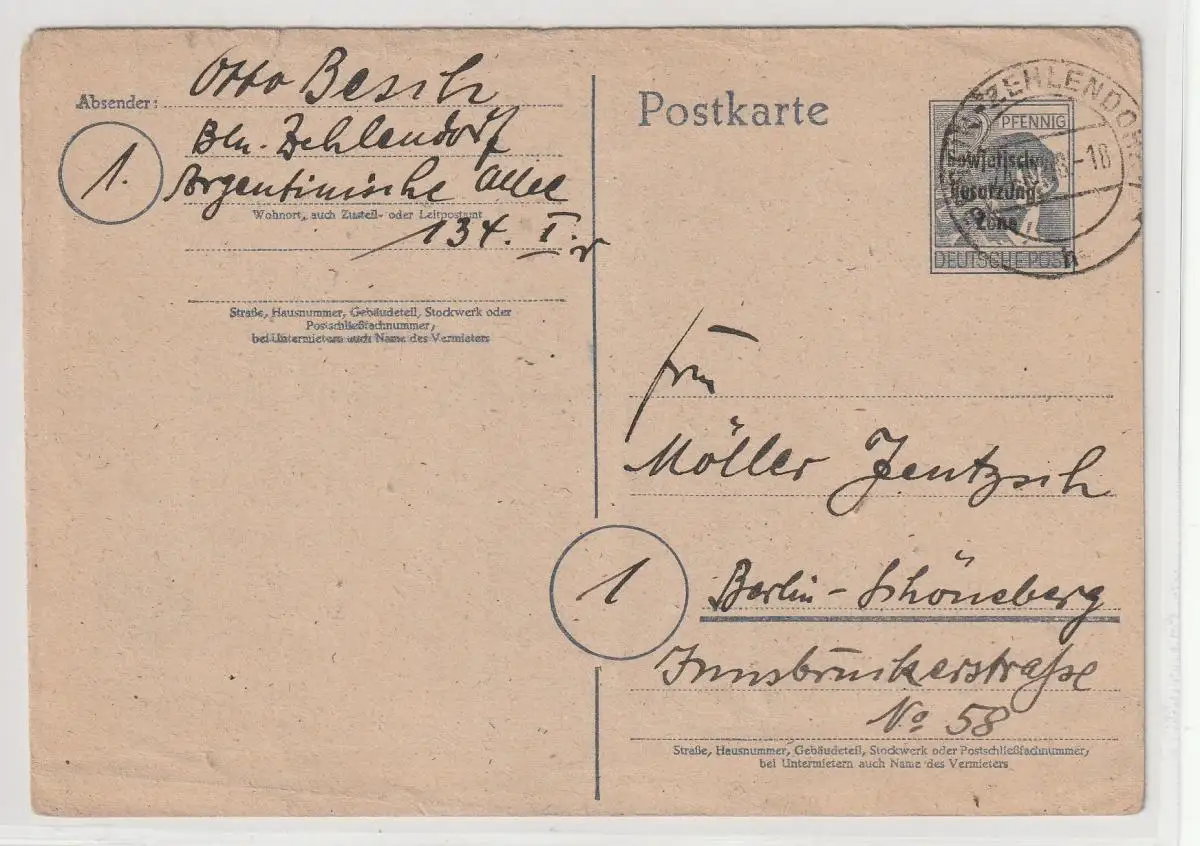 Absender: Otto Besch
Bln. Zehlendorf
1. Argentinische Allee
Wohnort, auch Zustell- oder Leitpostamt
134. I. r
Straße, Hausnummer, Gebäudeteil, Stockwerk oder
Postschließfachnummer,
bei Untermietern auch Name des Vermieters
Postkarte
ZEHLENDORF
PFENNIG
-18
Sowjetische
Besatzungs
Zone
DEUTSCHE POST
Frau
Möller Jentzsch
1 Berlin-Schöneberg
Innsbruckerstraße
No 58
Straße, Hausnummer, Gebäudeteil, Stockwerk oder Postschließfachnummer,
bei Untermietern auch Name des Vermieters